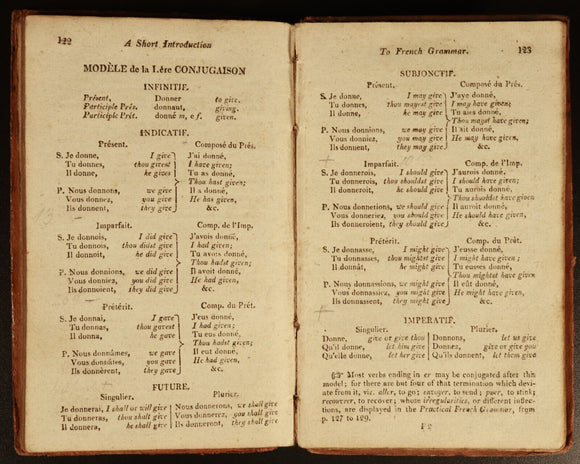 122 A Short Introduction
MODÈLE de la 1.ère CONJUGAISON
INFINITIF.
Présent, Donner to give.
Participle Prés. donnant, giving.
Participle Prét. donné m, e f. given.
INDICATIF.
Présent. Composé du Prés.
S. Je donne, I give J'ai donné,
Tu donnes, thou givest I have given;
Il donne, he gives Tu as donné,
Thou hast given;
P. Nous donnons, we give Il a donné,
Vous donnez, you give He has given,
Ils donnent, they give &c.
Imparfait. Comp. de l'Imp.
S. Je donnois, I did give J'avois donné,
Tu donnois, thou didst give I had given;
Il donnoit, he did give Tu avois donné,
Thou hadst given;
P. Nous donnions, we did give Il avoit donné,
Vous donniez, you did give He had given,
Ils donnoient, they did give &c.
Prétérit. Comp. du Prét.
S. Je donnai, I gave J'eus donné,
Tu donnas, thou gavest I had given;
Il donna, he gave Tu eus donné,
Thou hadst given;
P. Nous donnâmes, we gave Il eut donné,
Vous donnâtes, you gave He had given,
Ils donnèrent, they gave &c.
FUTURE.
Singulier. Plurier.
Je donnerai, I shall or will give Nous donnerons, we shall give
Tu donneras, thou shalt give Vous donnerez, you shall give
Il donnera, he shall give Ils donneront, they shall give
To French Grammar. 123
SUBJONCTIF.
Présent. Composé du Prés.
S. Je donne, I may give J'aye donné,
Tu donnes, thou mayest give I may have given;
Il donne, he may give Tu aies donné,
Thou mayst have given;
P. Nous donnions, we may give Il ait donné,
Vous donniez, you may give He may have given,
Ils donnent, they may give &c.
Imparfait. Comp. de l'Imp.
S. Je donnerois, I should give J'aurois donné,
Tu donnerois, thou shouldst give I should have given;
Il donneroit, he should give Tu aurois donné,
Thou shouldst have given
P. Nous donnerions, we should give Il auroit donné,
Vous donneriez, you should give He should have given,
Ils donneroient, they should give &c.
Prétérit. Comp. du Prét.
S. Je donnasse, I might give J'eusse donné,
Tu donnasses, thou mightst give I might have given;
Il donnât, he might give Tu eusses donné,
Thou mightst have given
P. Nous donnassions, we might give Il eût donné,
Vous donnassiez, you might give He might have given,
Ils donnassent, they might give &c.
IMPERATIF.
Singulier. Plurier.
Donne, give or give thou Donnons, let us give
Qu'il donne, let him give Donnez, give or give you
Qu'elle donne, let her give Qu'ils donnent, let them give
Most verbs ending in er may be conjugated after this
model; for there are but four of that termination which devi-
ate from it, viz. aller, to go; envoyer, to send; puer, to stink;
recouvrer, to recover; whose irregularities, or different inflec-
tions, are displayed in the Practical French Grammar, from
p. 127 to 129.
F 2